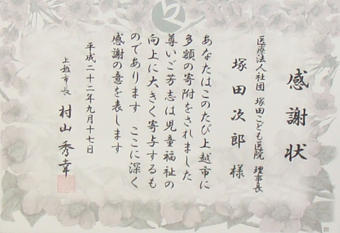 感謝状
医療法人社団 塚田こども医院 理事長
塚田次郎様
あなたはこのたび上越市に
多額の寄附をされました
尊いご芳志は児童福祉の
向上に大きく寄与するも
のであります ここに深く
感謝の意を表します
平成二十二年九月十七日
上越市長 村山秀幸